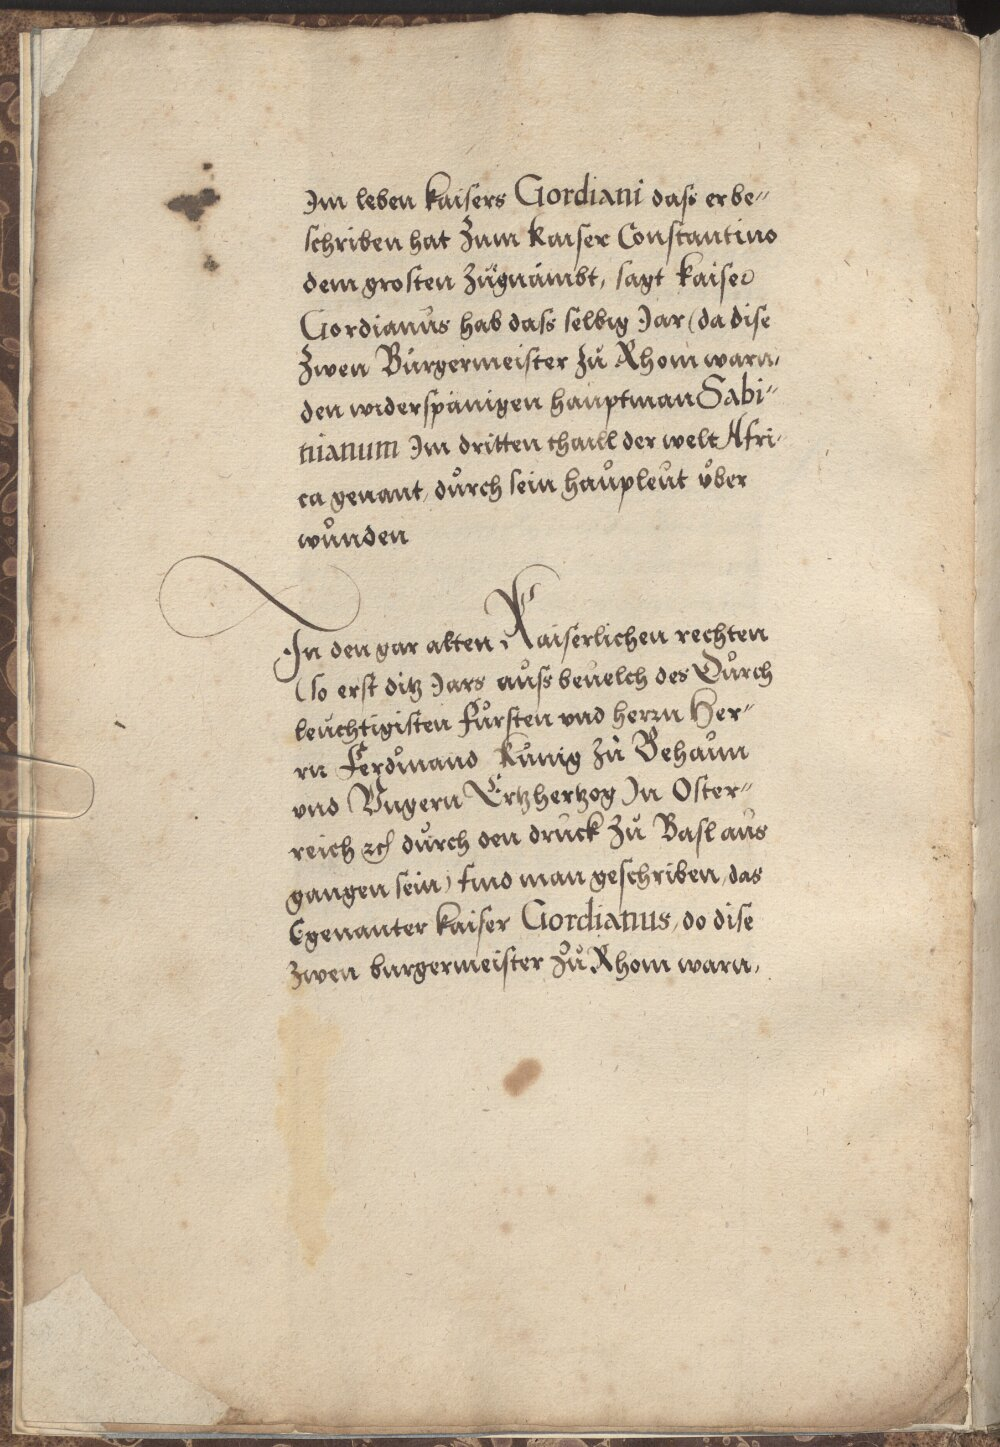 Im leben kaisers Gordiani dass er be⸗
schriben hat Zum Kaiser Constantino
dem grosten zůgnambt, sagt kaiser
Gordianus hab dass selbig Jar (da dise
Zwen Burgermeister zů Rhom warn,
den widerspänigen hauptman Sabi⸗
nianum Im dritten thaill der welt Afri⸗
ca genant, důrch sein haůpleůt vber
wůnden
In den gar alten Kaiserlichen rechten
(so erst ditz Jars aůss beuelch des Důrch
leuchtigisten fůrsten vnd herrn Her⸗
rn Ferdinand Kůnig zů Behaim
vnd Vngern Ertzhertzog In Oster⸗
reich ꝛc̃ důrch den druck zů Basl aus
gangen sein) find man geschriben, das
Egenanter kaiser Gordianus, do dise
zwen burgermeister zů Rhom warn,